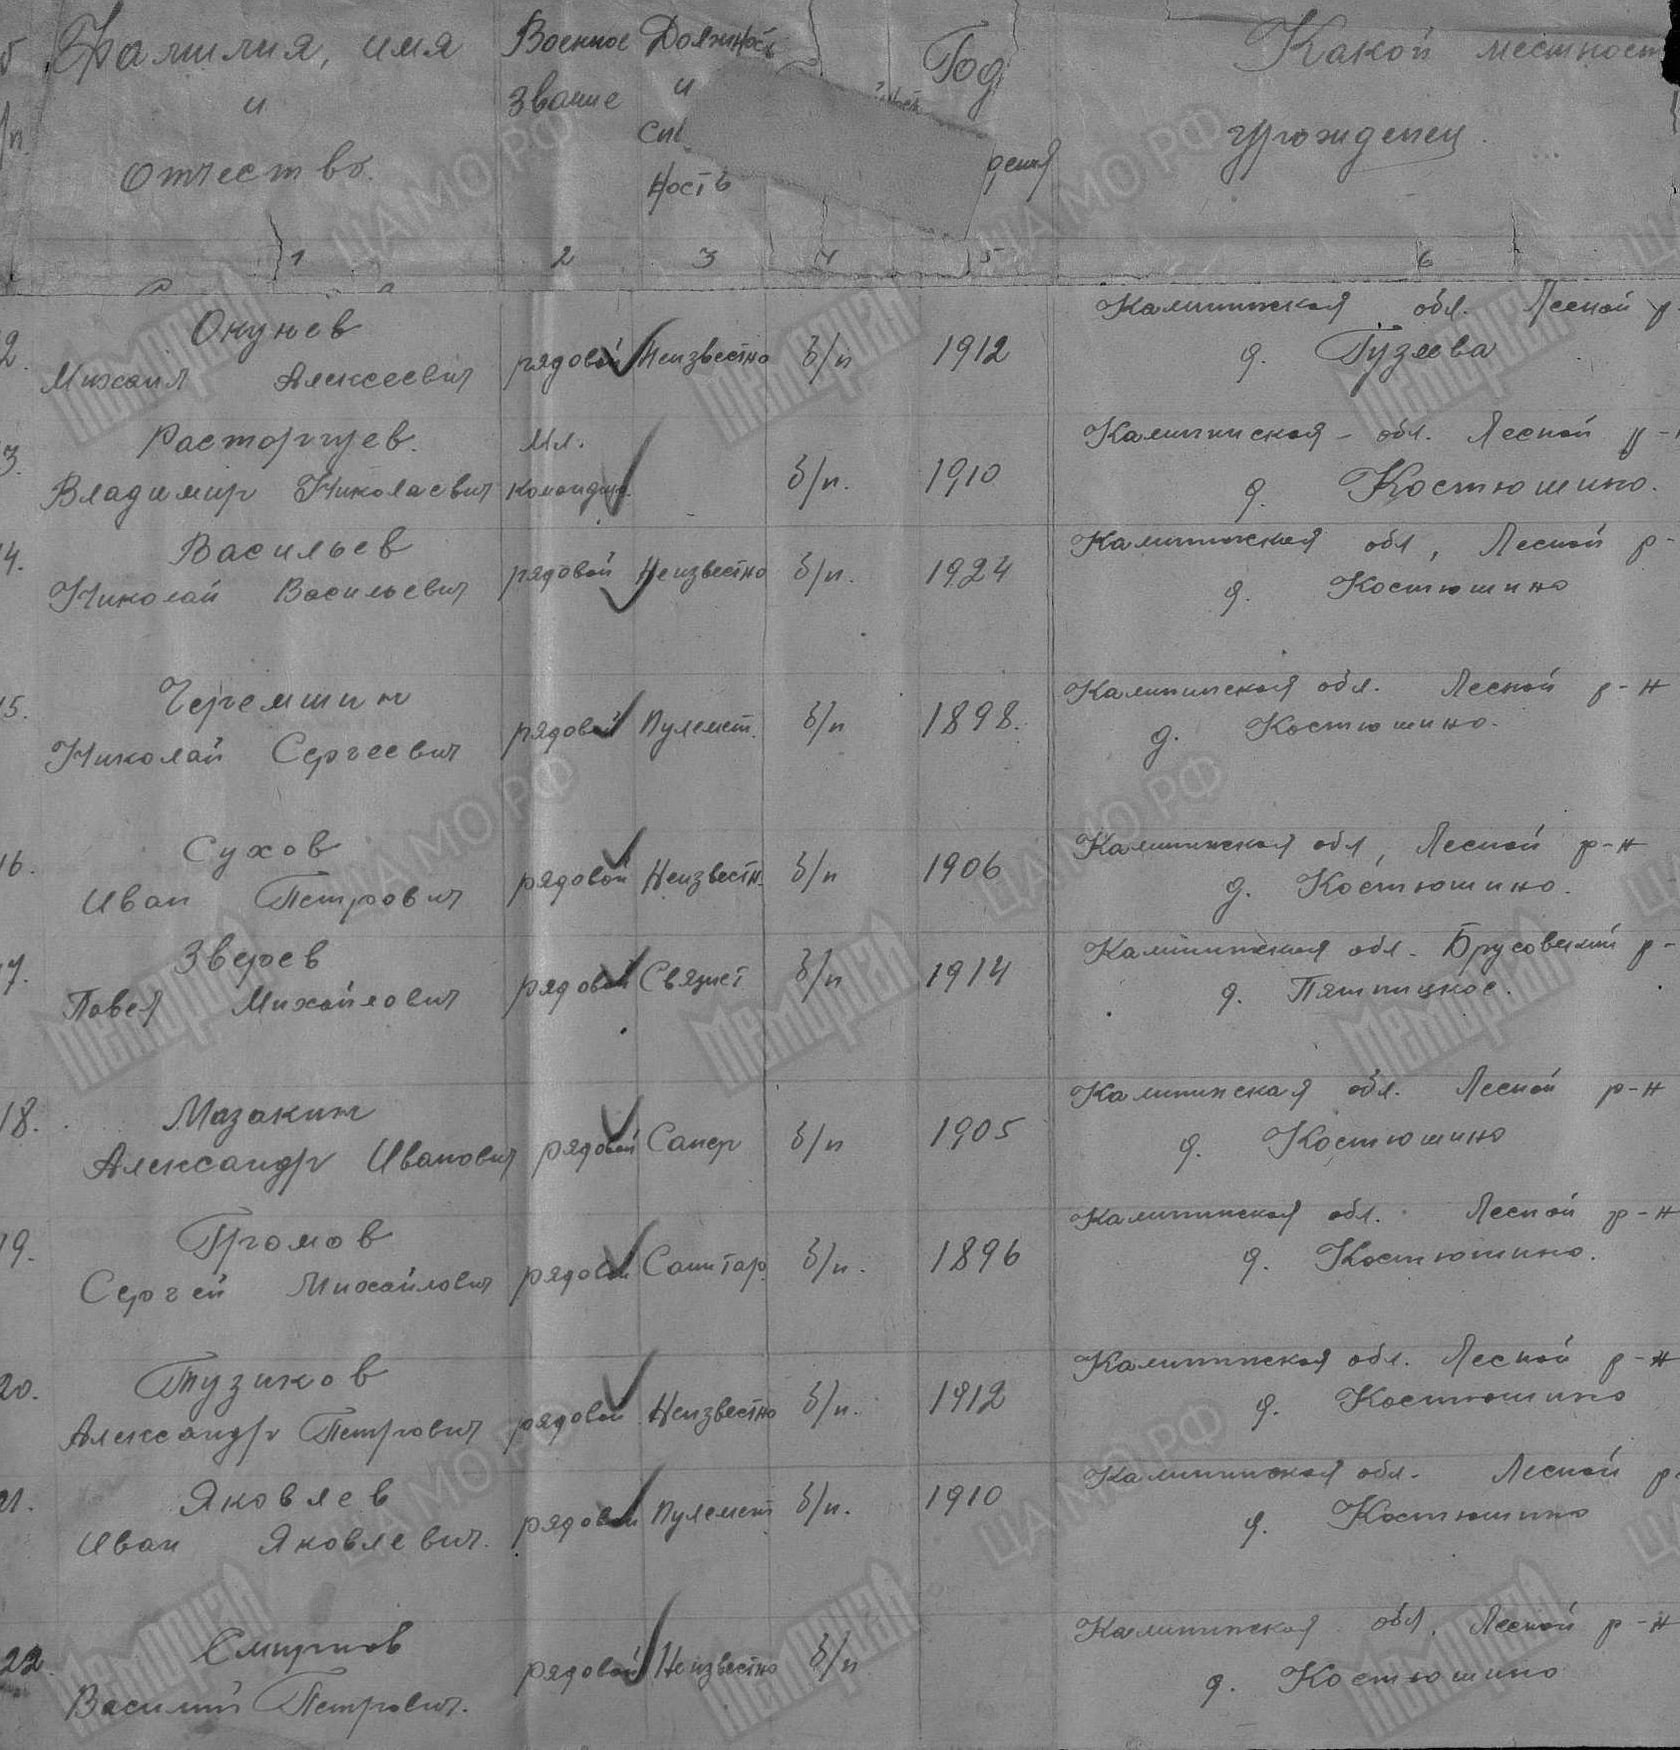 Фамилия, имя
и
отчество.
Военное
звание
Должность
и
ность
Год
дения
Какой местност
урожденец.
1 2 3 4 5 6
Окунев
Михаил Алексеевич
рядовой Неизвестно б/п 1912
Калининская обл. Лесной р-
д. Гузеева
3. Расторгуев.
Владимир Николаевич
Мл.
командир. - б/п. 1910
Калининская - обл. Лесной р-н
д. Костюшино.
14. Васильев
Николай Васильевич
рядовой Неизвестно б/п. 1924
Калининская обл, Лесной р-
д. Костюшино
15. Черемшин
Николай Сергеевич
рядовой Пулемет. б/п 1898.
Калининская обл. Лесной р-н
д. Костюшино.
16. Сухов
Иван Петрович
рядовой Неизвестн. б/п 1906
Калининская обл, Лесной р-н
д. Костюшино.
7. Зверев
Павел Михайлович
рядовой Связист б/п 1914
Калининская обл. Брусовский р-
д. Пятницкое.
18. Мазакин
Александр Иванович
рядовой Сапер б/п 1905
Калининская обл. Лесной р-н
д. Костюшино
19. Громов
Сергей Михайлович
рядовой Санитар. б/п. 1896
Калининская обл. Лесной р-н
д. Костюшино.
20. Тузиков
Александр Петрович
рядовой Неизвестно б/п. 1912
Калининская обл. Лесной р-н
д. Костюшино
21. Яковлев
Иван Яковлевич.
рядовой Пулемет б/п. 1910
Калининская обл. Лесной р-
д. Костюшино
22. Смирнов
Василий Петрович.
рядовой Неизвестно б/п
Калининская обл. Лесной р-н
д. Костюшино
Мемориал
ЦАМО РФ